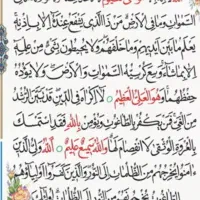 السَّمَوَاتِ وَمَا فِي الْأَرْضِ مَنْ ذَا الَّذِي يَشْفَعُ عِنْدَهُ إِلَّا بِإِذْنِهِ
يَعْلَمُ مَا بَيْنَ أَيْدِيهِمْ وَمَا خَلْفَهُمْ وَلَا يُحِيطُونَ بِشَيْءٍ مِنْ عِلْمِهِ
إِلَّا بِمَا شَاءَ وَسِعَ كُرْسِيُّهُ السَّمَوَاتِ وَالْأَرْضَ وَلَا يَؤُدُهُ
حِفْظُهُمَا وَهُوَ الْعَلِيُّ الْعَظِيمُ لَا إِكْرَاهَ فِي الدِّينِ قَدْ تَبَيَّنَ الرُّشْدُ
مِنَ الْغَيِّ فَمَنْ يَكْفُرْ بِالطَّاغُوتِ وَيُؤْمِنْ بِاللَّهِ فَقَدِ اسْتَمْسَكَ
بِالْعُرْوَةِ الْوُثْقَى لَا انْفِصَامَ لَهَا وَاللَّهُ سَمِيعٌ عَلِيمٌ اللَّهُ وَلِيُّ الَّذِينَ
آمَنُوا يُخْرِجُهُمْ مِنَ الظُّلُمَاتِ إِلَى النُّورِ وَالَّذِينَ كَفَرُوا أَوْلِيَاؤُهُمُ
الطَّاغُوتُ يُخْرِجُونَهُمْ مِنَ النُّورِ إِلَى الظُّلُمَاتِ أُولَئِكَ